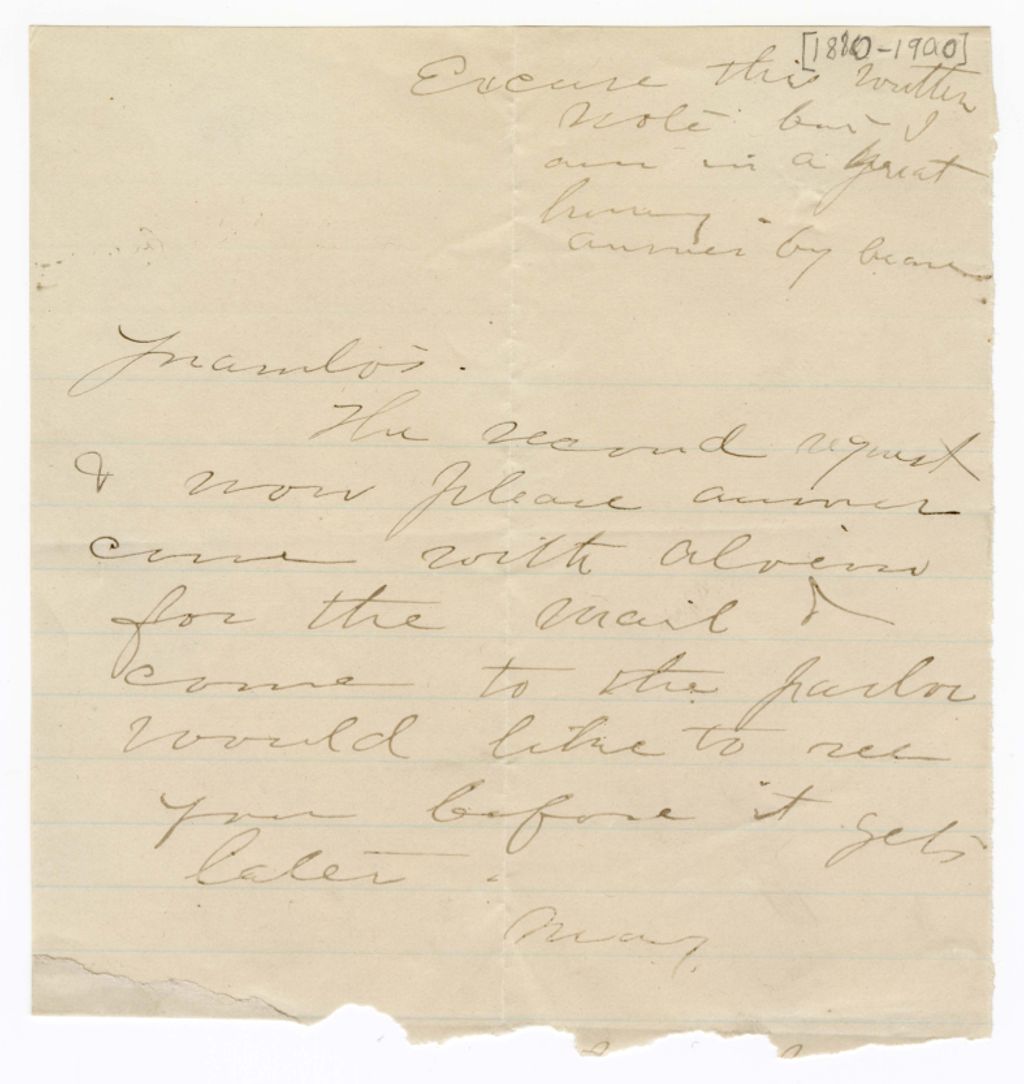 [1880-1900]
Excuse this written
note but I
am in a great
hurry.
answer by bearer
The second request
& now please answer
come with
for the mail &
come to the parlor
would like to see
you before it gets
later.
May.